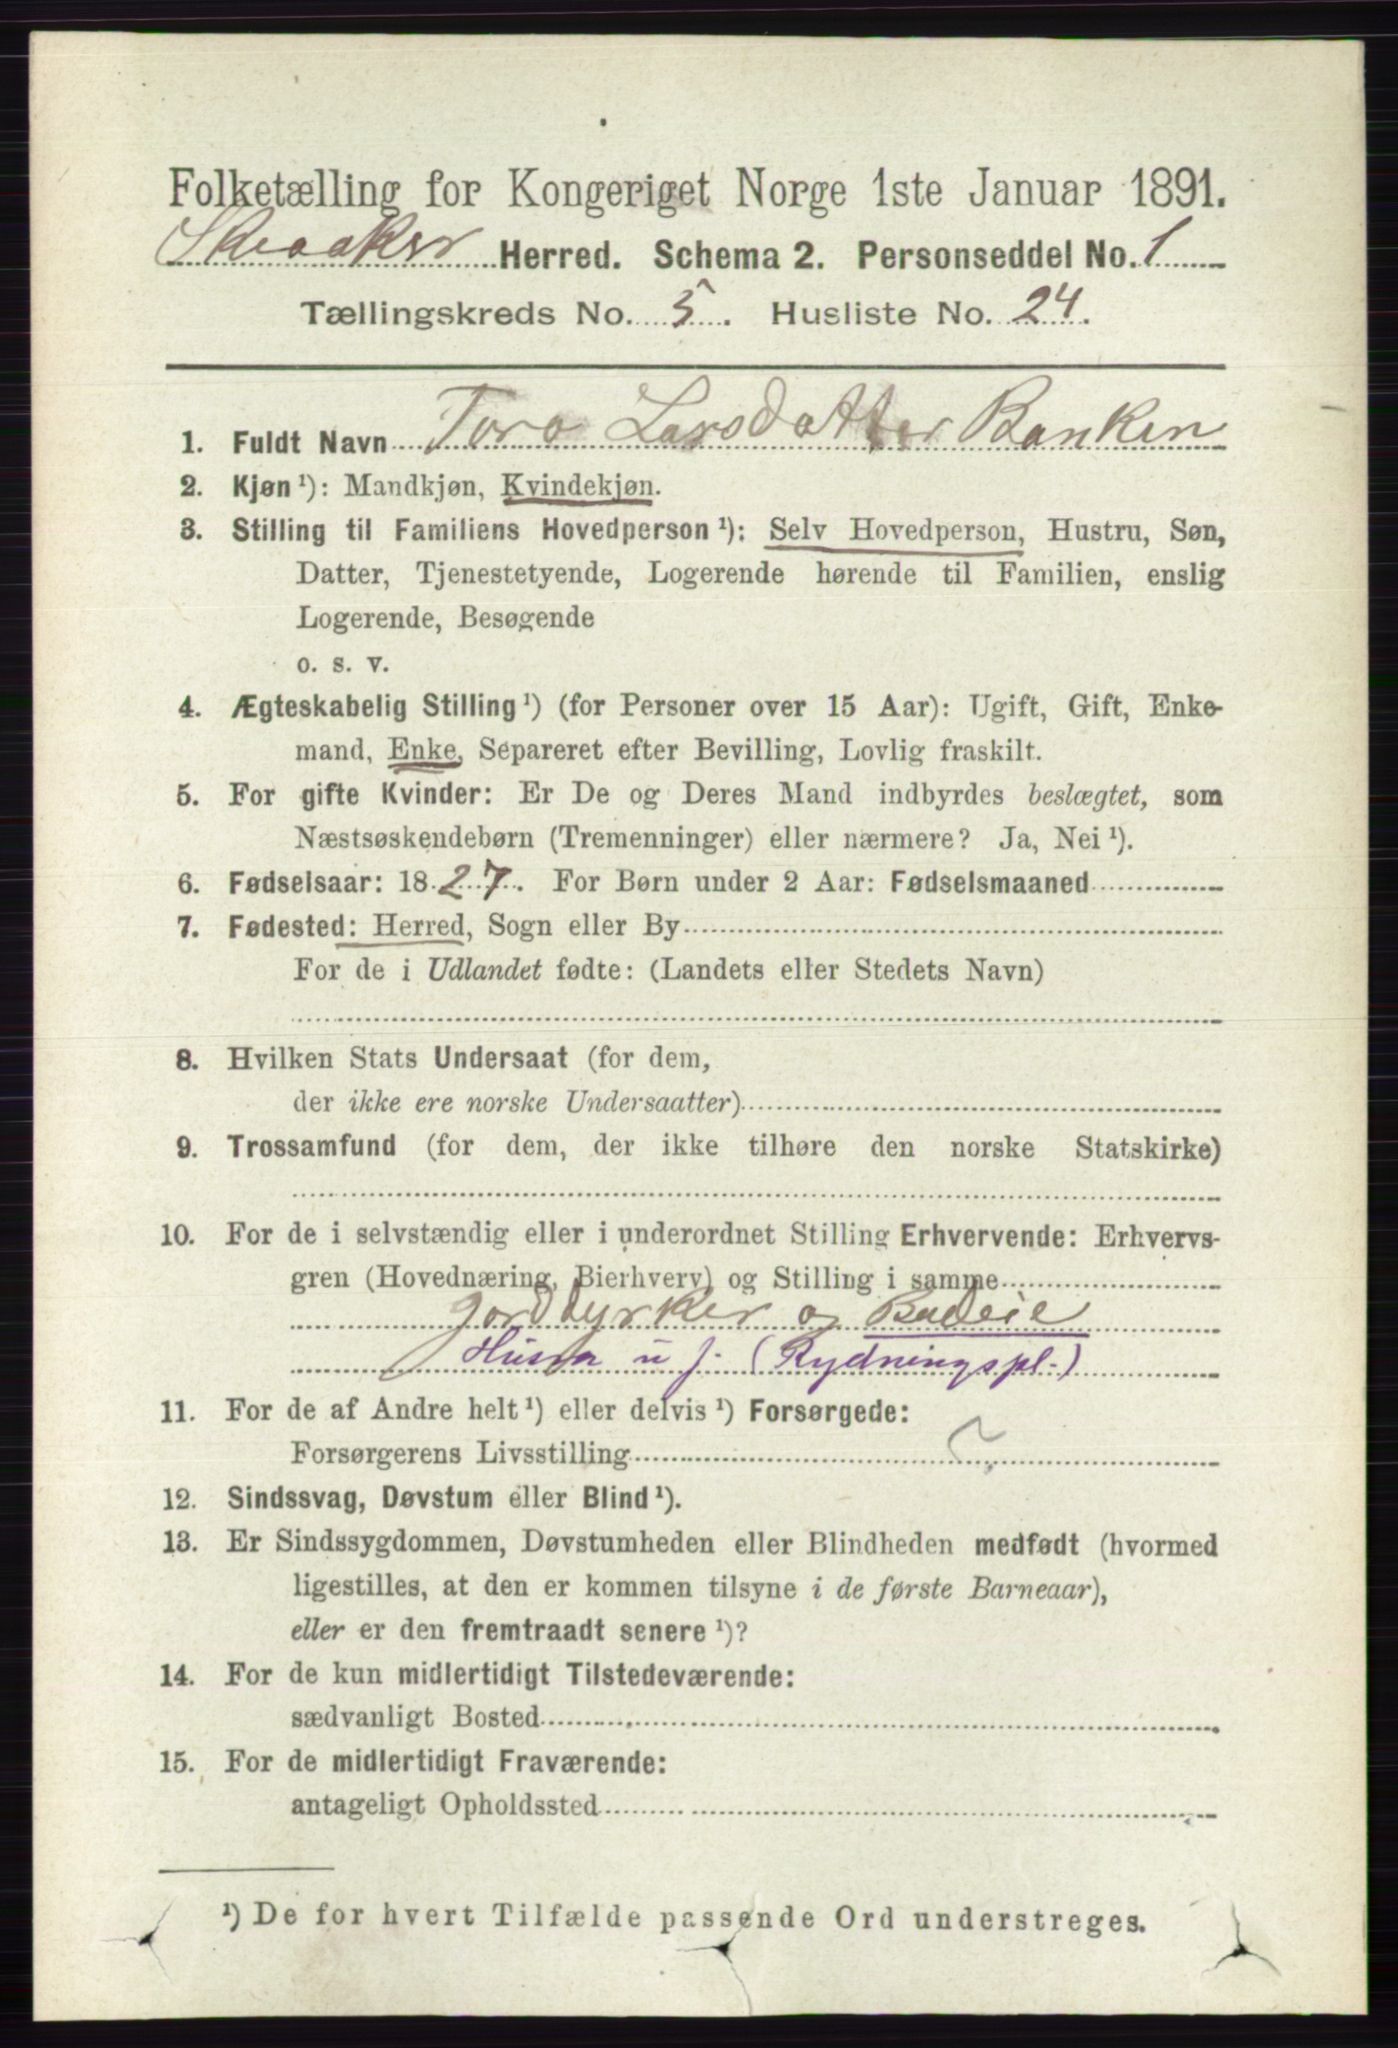 Folketælling for Kongeriget Norge 1ste Januar 1891.
Skeaker Herred. Schema 2. Personseddel No. 1
Tællingskreds No. 5. Husliste No. 24.
1. Fuldt Navn Tora Larsdatter Banken
2. Kjøn ¹): Mandkjøn, Kvindekjøn.
3. Stilling til Familiens Hovedperson ¹): Selv Hovedperson, Hustru, Søn,
Datter, Tjenestetyende, Logerende hørende til Familien, enslig
Logerende, Besøgende
o. s. v.
4. Ægteskabelig Stilling ¹) (for Personer over 15 Aar): Ugift, Gift, Enke-
mand, Enke, Separeret efter Bevilling, Lovlig fraskilt.
5. For gifte Kvinder: Er De og Deres Mand indbyrdes beslægtet, som
Næstsøskendebørn (Tremenninger) eller nærmere? Ja, Nei ¹).
6. Fødselsaar: 1827. For Børn under 2 Aar: Fødselsmaaned
7. Fødested: Herred, Sogn eller By
For de i Udlandet fødte: (Landets eller Stedets Navn)
8. Hvilken Stats Undersaat (for dem,
der ikke ere norske Undersaatter)
9. Trossamfund (for dem, der ikke tilhøre den norske Statskirke)
10. For de i selvstændig eller i underordnet Stilling Erhvervende: Erhvervs-
gren (Hovednæring, Bierhverv) og Stilling i samme
Jorddyrker og Budeie
Husm u j. (Rydningspl.)
11. For de af Andre helt ¹) eller delvis ¹) Forsørgede:
Forsørgerens Livsstilling ?
12. Sindssvag, Døvstum eller Blind ¹).
13. Er Sindssygdommen, Døvstumheden eller Blindheden medfødt (hvormed
ligestilles, at den er kommen tilsyne i de første Barneaar),
eller er den fremtraadt senere ¹)?
14. For de kun midlertidigt Tilstedeværende:
sædvanligt Bosted
15. For de midlertidigt Fraværende:
antageligt Opholdssted
¹) De for hvert Tilfælde passende Ord understreges.